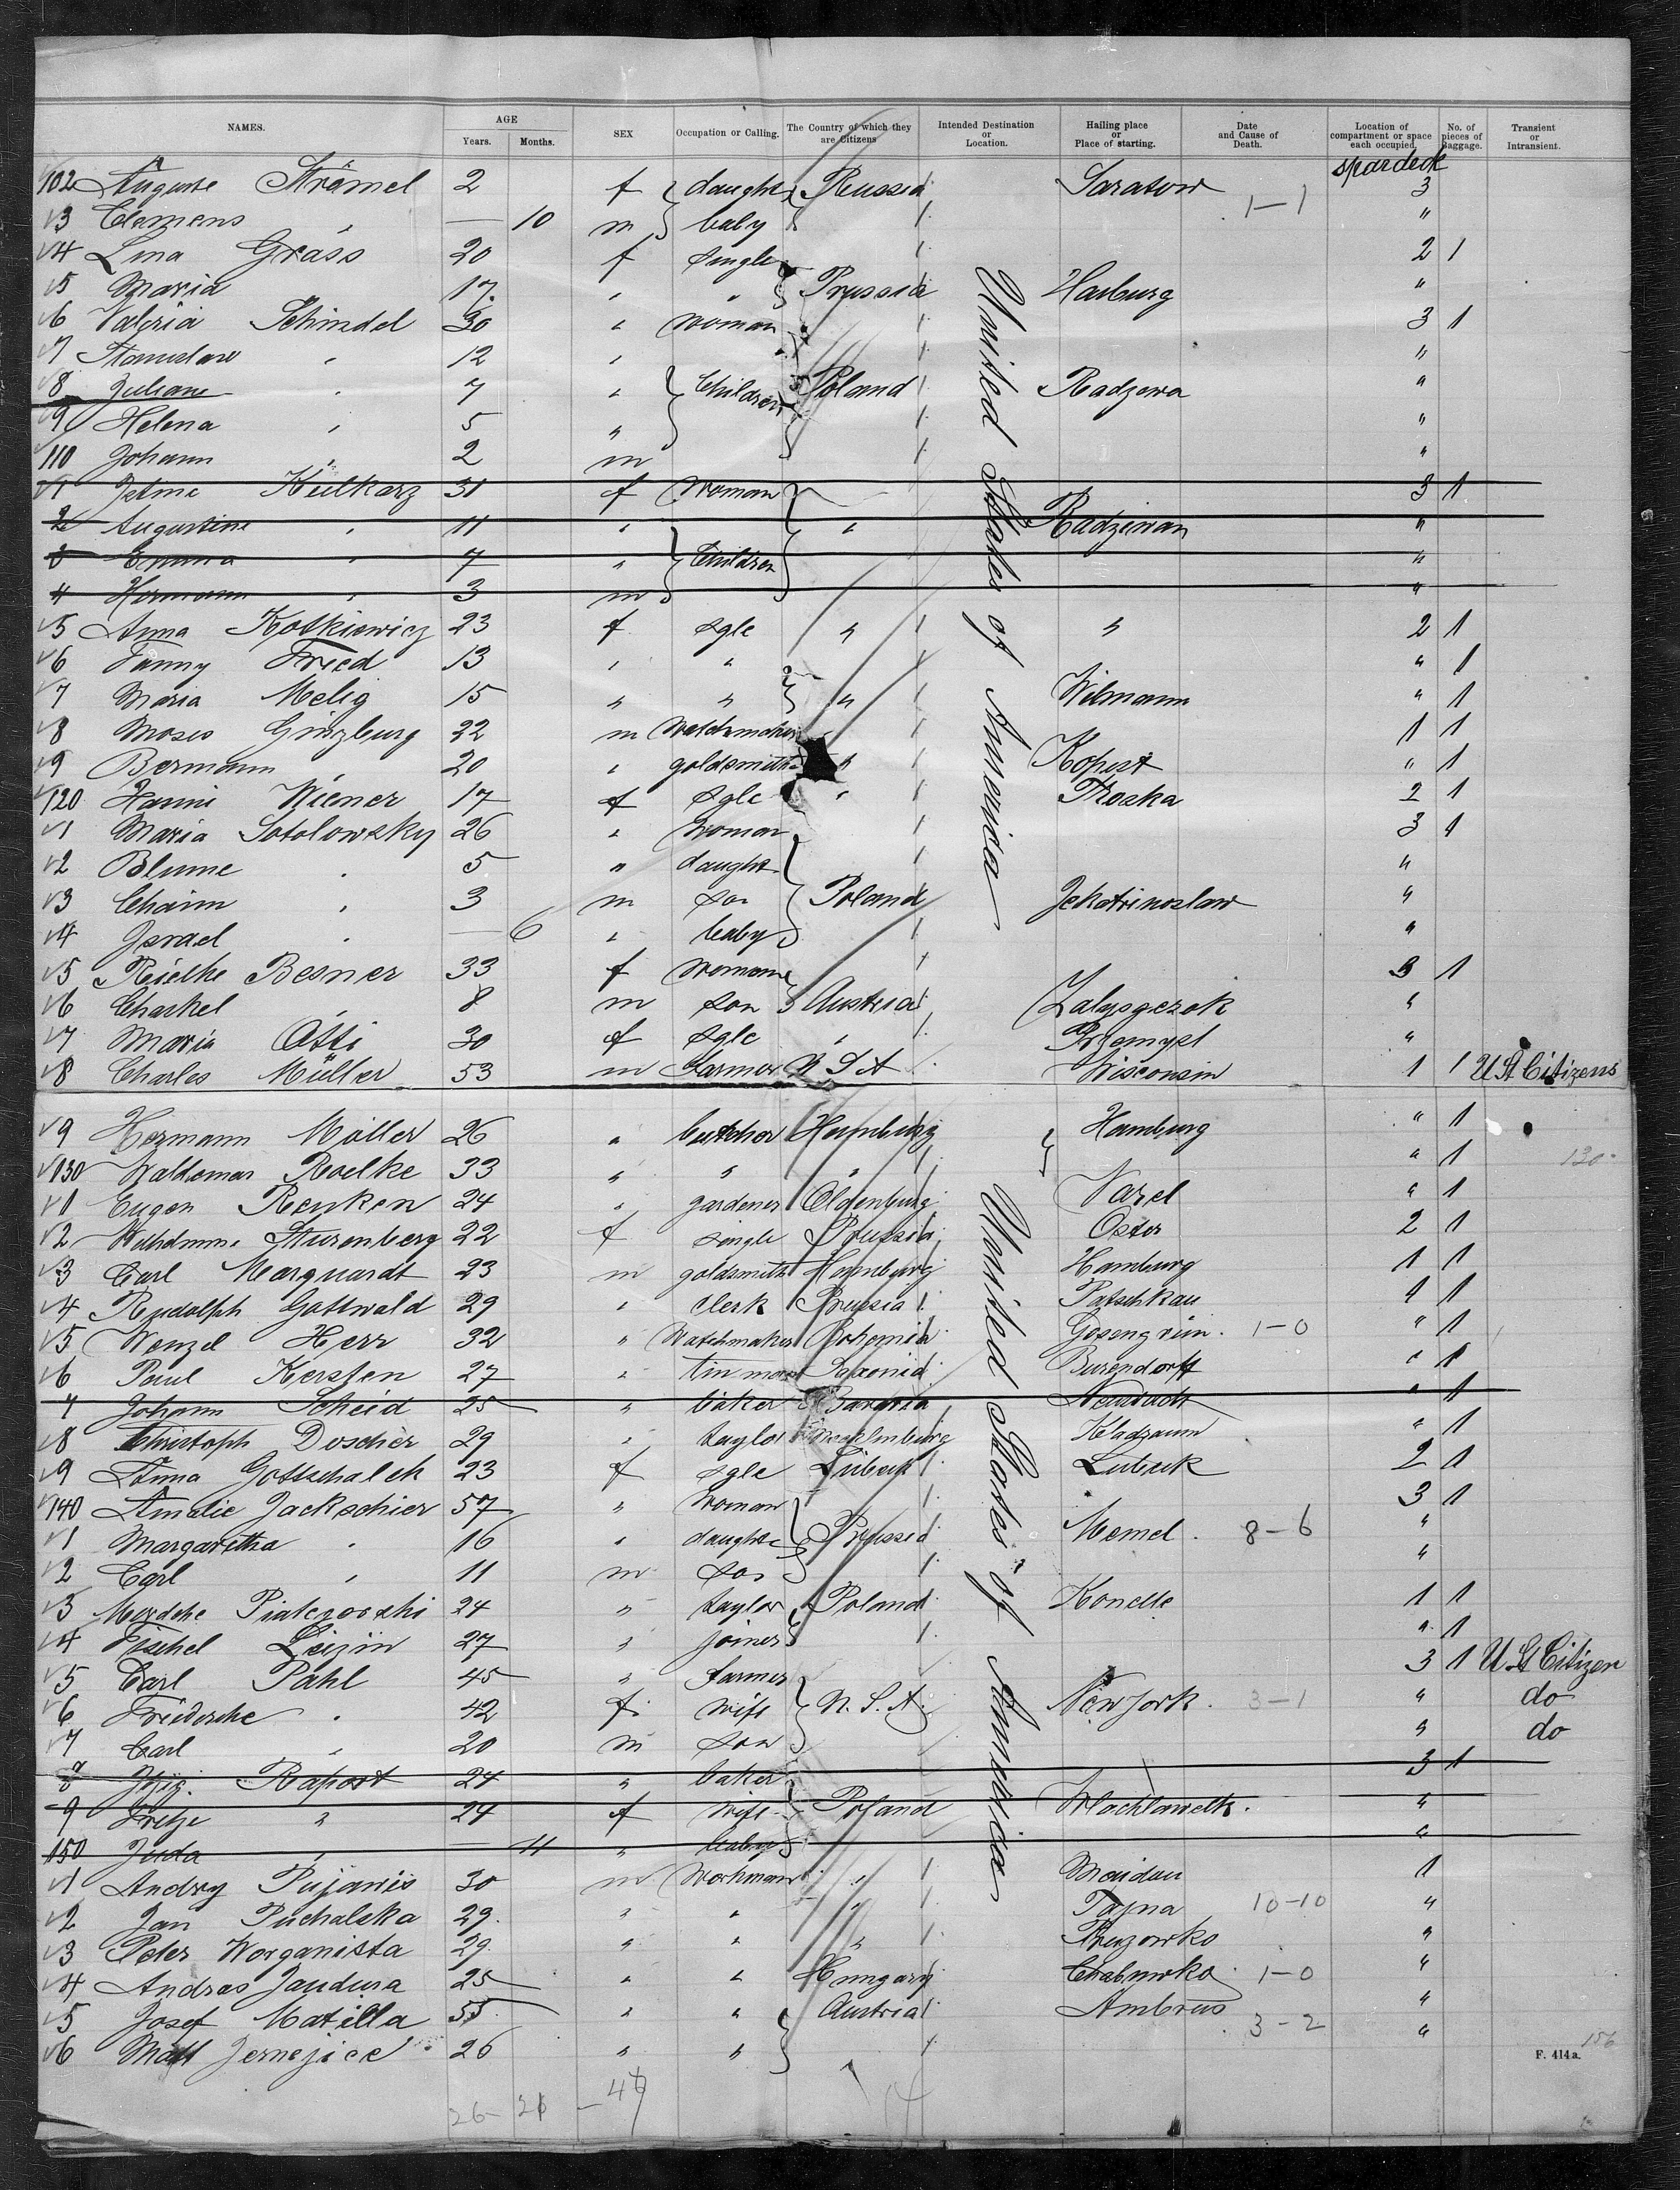 NAMES. AGE Years. Months. SEX Occupation or Calling. The Country of which they are Citizens Intended Destination or Location. Hailing place or Place of starting. Date and Cause of Death. Location of compartment or space each occupied. No. of pieces of Baggage. Transient or Intransient.
spardeck
102 Auguste Strömel 2 f daught. Russia Saratow 3
3 Clemens " — 10 m baby 1-1 "
4 Lina Grass 20 f single 2 1
5 Maria " 17 " " Prussia Harburg "
6 Valeria Schindel 30 " woman 3 1
7 Stanislaw " 12 " "
8 Juliane " 7 " Children Poland Radzewa "
9 Helena " 5 " "
110 Johann " 2 m "
1 Jetme Kulkarz 31 f Woman 3 1
2 Augustine " 11 " " Radziwan "
3 Emma " 7 " Children "
4 Hermann " 3 m "
5 Anna Kotkiewicz 23 f sgle " " 2 1
6 Fanny Fried 13 " " " 1
7 Maria Melig 15 " " " Wilmann " 1
8 Moses Ginzburg 22 m Watchmaker 1 1
9 Bermann " 20 " goldsmith " Kopust " 1
120 Hanni Wiener 17 f sgle " Ploska 2 1
1 Maria Sotolowsky 26 " woman 3 1
2 Blume " 5 " daught. "
3 Chaim " 3 m son Poland Jekatrinoslaw "
4 Israel " — 6 " baby "
5 Rielke Besner 33 f woman 3 1
6 Charkel " 8 m son Austria Zalysgczok "
7 Maria Otti 30 f sgle " Przemysl "
8 Charles Müller 53 m Farmer U S A Wisconsin 1 1 U St Citizens
United States of America
9 Hermann Möller 26 " butcher Hamburg Hamburg " 1
130 Waldemar Roelke 33 " " " " 1 130
1 Eugen Renken 24 " gardener Oldenburg Varel " 1
2 Wilhelmine Sturenberg 22 f single Prussia Oster 2 1
3 Carl Marquardt 23 m goldsmith Hamburg Hamburg 1 1
4 Rudolph Gottwald 29 " Clerk Prussia Patschkau 1 1
5 Wenzel Herr 32 " Watchmaker Bohemia Gosengrün 1-0 " 1
6 Paul Kersten 27 " tin man Saxonia Burendorff " 1
7 Johann Scheid 25 " baker Bavaria " 1
8 Christoph Doscher 29 " taylor Mecklenburg Kladzaum " 1
9 Anna Gottschalck 23 f sgle Lübeck Lubeck 2 1
140 Amalie Jackschier 57 " Woman 3 1
1 Margaretha " 16 " daught. Prussia Memel 8-6 "
2 Carl " 11 m son "
3 Mordche Piatezorski 24 " taylor Poland Konelle 1 1
4 Fischel Leizin 27 " joiner " 1
5 Carl Pahl 45 " farmer 3 1 U St Citizen
6 Friedericke " 42 f wife U. S. A. New York 3-1 " do
7 Carl " 20 m son " do
8 Rapost 24 " baker 3 1
9 " 24 f wife Poland Wlachlawelk "
150 Juda " — 11 " baby "
1 Andry Pujawis 30 m Workman " Maidan 1
2 Jan Puchalska 29 " " " Tayna 10-10 "
3 Peter Worganista 29 " " " Pruzowko "
4 Andras Jandura 25 " " Hungary Chabowko 1-0 "
5 Josef Matilla 55 " " Austria Ambrus "
6 Matt Jernejice 26 " " 3-2 " 156
United States of America
F. 414a.
26- 21 -47 14